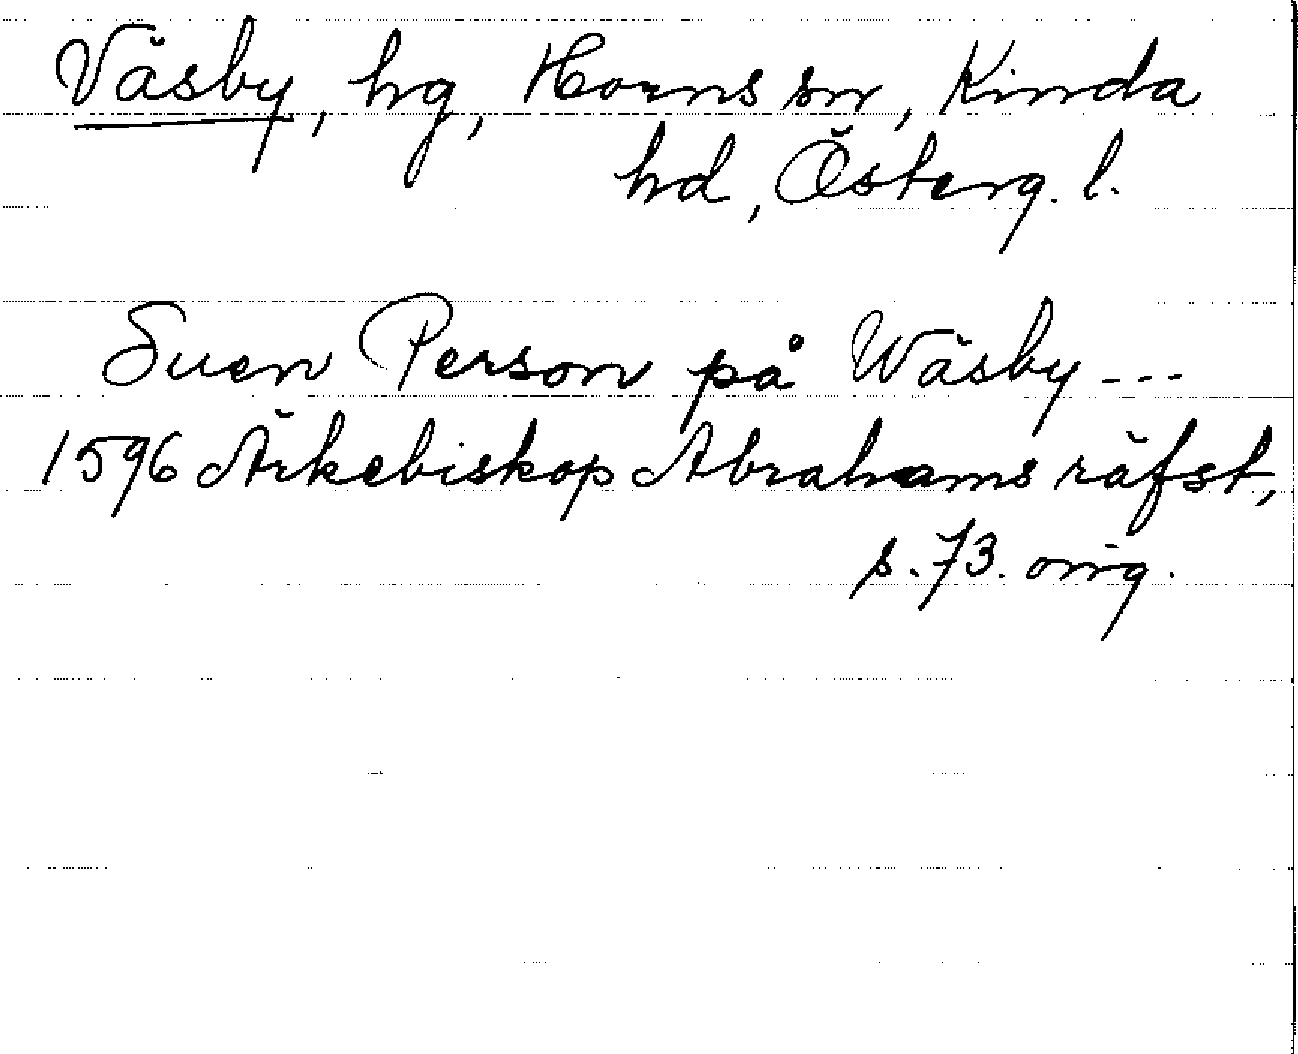 Väsby, hg, Horns sn, Kinda
hd, Österg. l.
Suen Person på Wäsby ---
1596 Ärkebiskop Abrahams räfst,
s. 73. orig.